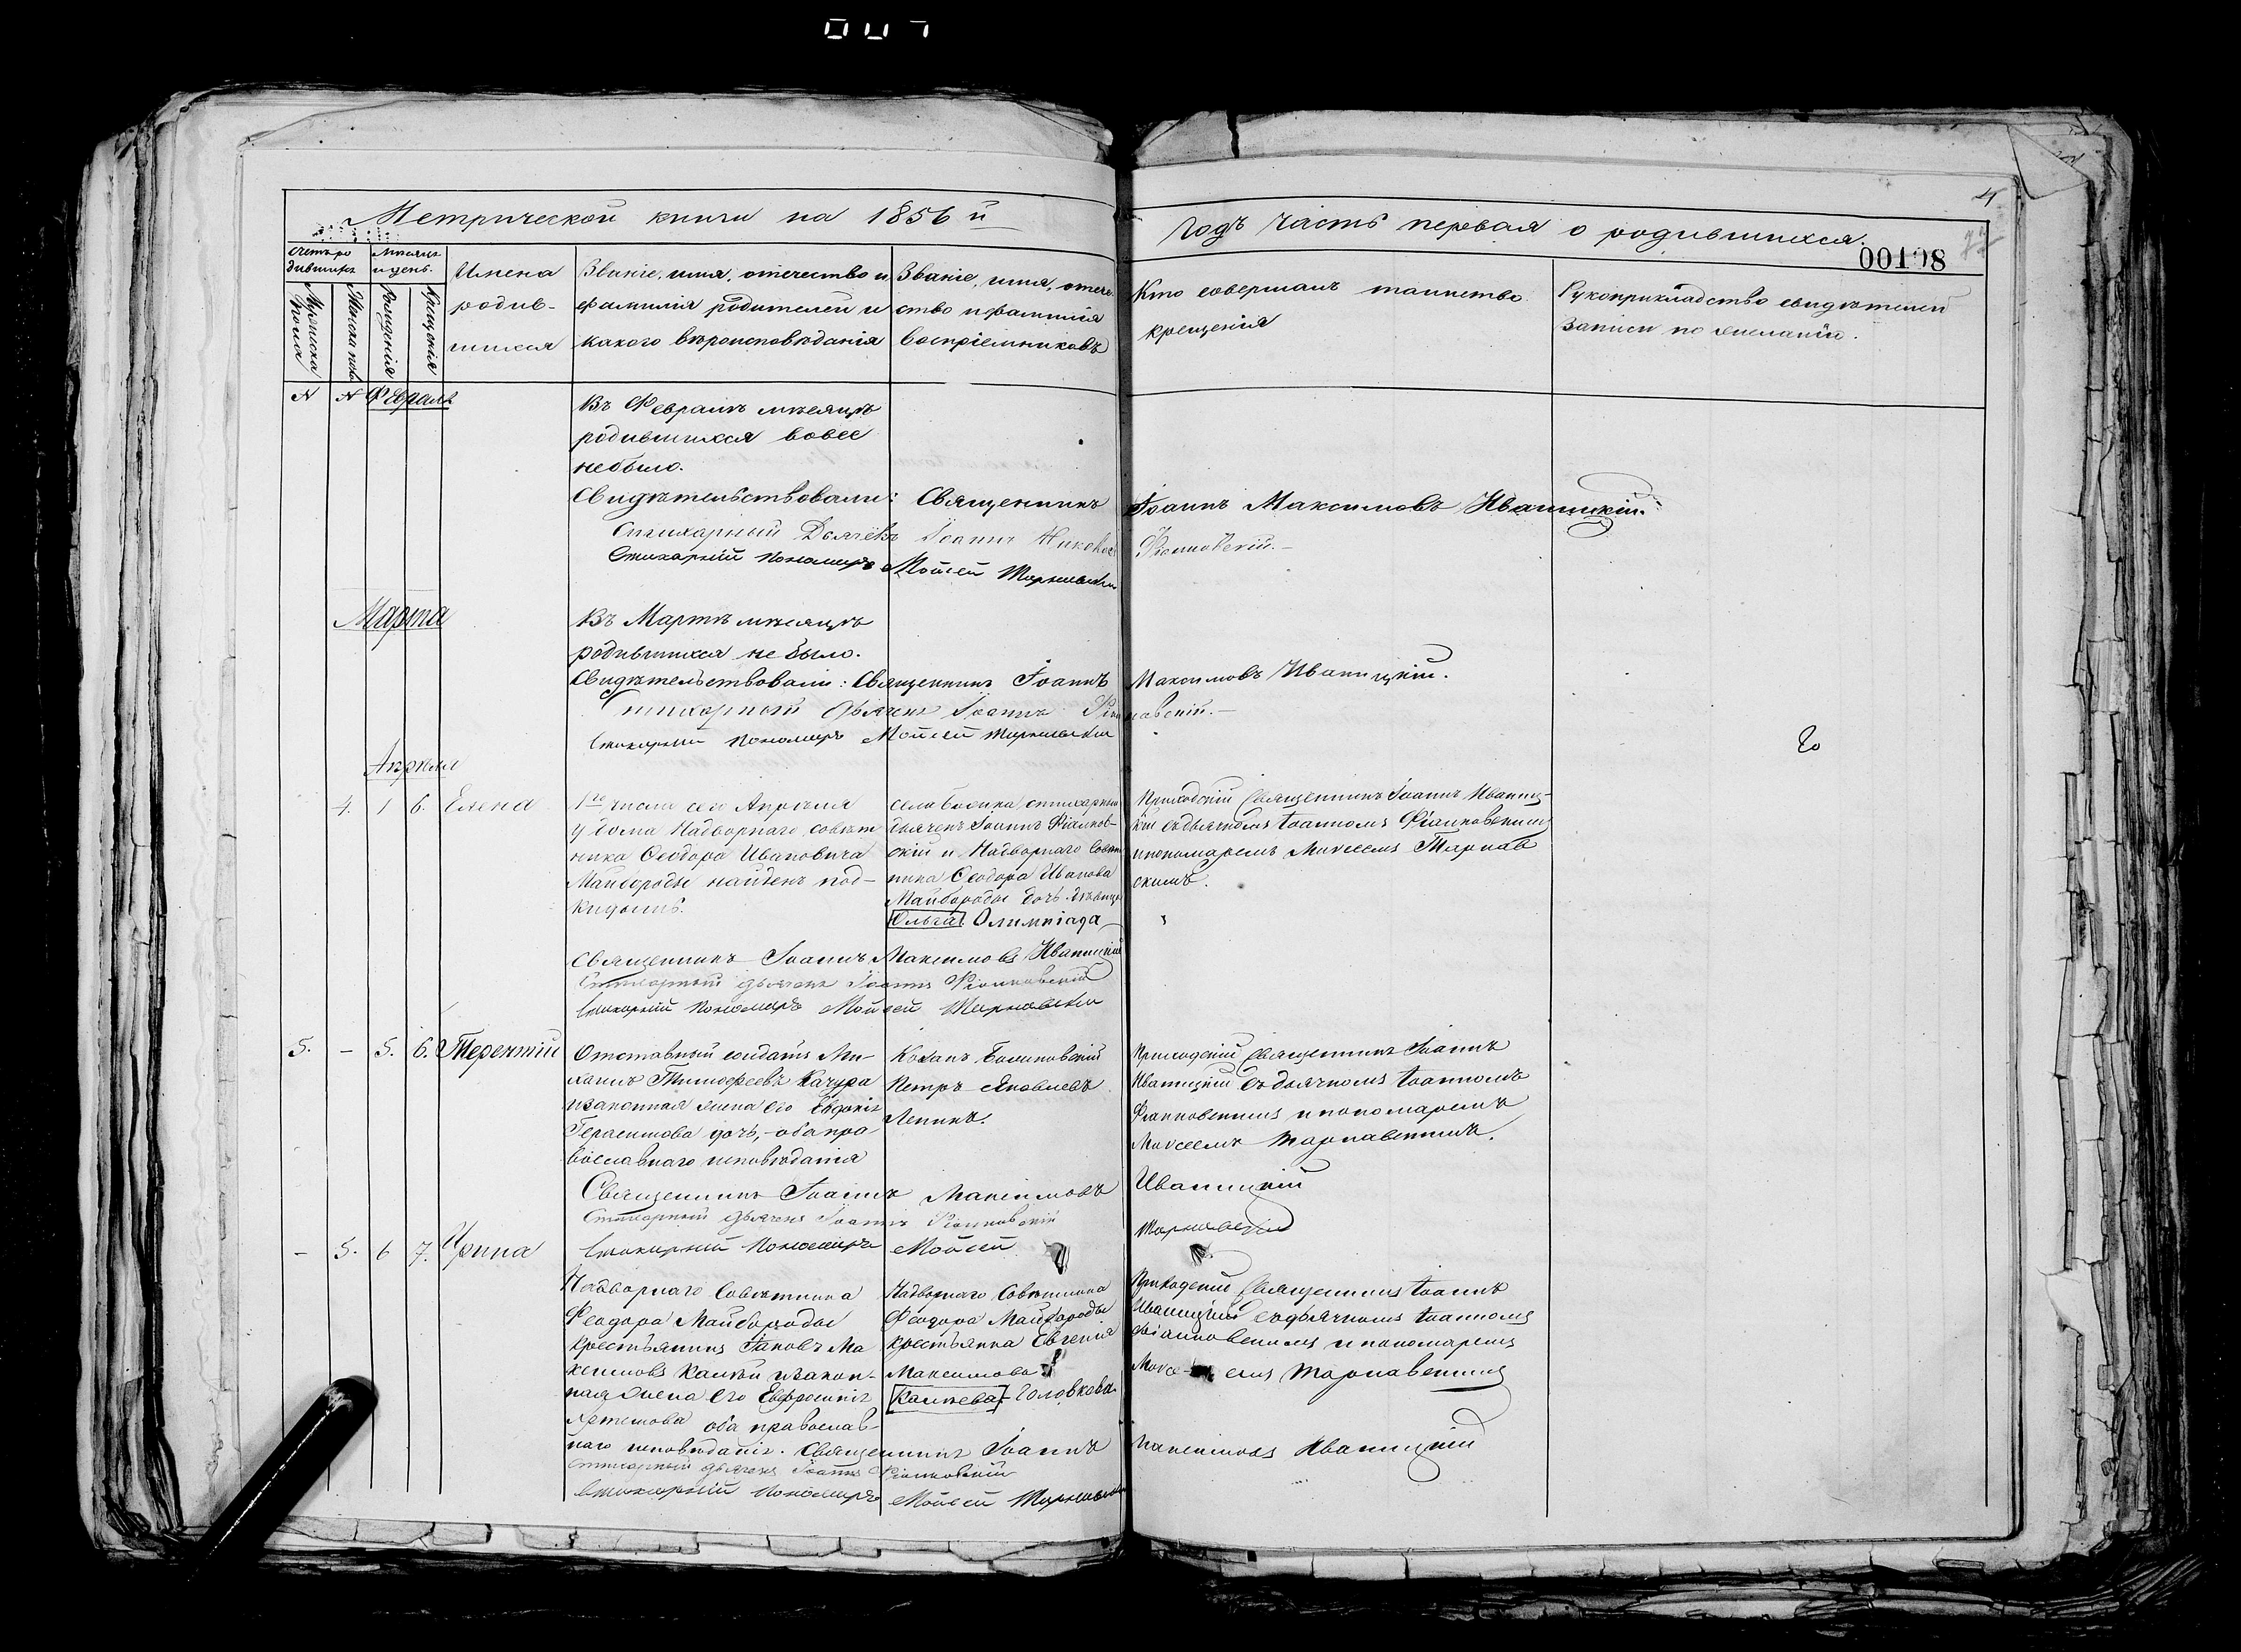 007
4
Метрической книги на 1856 й годъ часть первая о родившихся.
00108
Счетъ ро
дившихъ
Мѣсяцъ
и день.
Мужеска
пола
Женска пола
Рожденія
Крещенія
Имена
родив-
шихся
Званіе, имя, отечество и
фамилія родителей и
какого вѣроисповѣданія
Званіе, имя, отече-
ство и фамилія
воспріемниковъ
Кто совершалъ таинство
крещенія
Рукоприкладство свидѣтелей
записи по желанію.
Февраль
Въ Февралѣ мѣсяцѣ
родившихся вовсе
небыло.
Свидѣтельствовали: Священникъ Іоаннъ Максимовъ Иваницкій.
Стихарный Дьячекъ Іоаннъ Фіалковскій.
Стихарный Пономарь Мойсей Тарнавскій
Марта
Въ Мартѣ мѣсяцѣ
родившихся не было.
Свидѣтельствовали: Священникъ Іоаннъ Максимовъ Иваницкій.
Стихарный Дьячекъ Іоаннъ Фіалковскій.
Стихарный Пономарь Мойсей Тарнавскій
Апрѣля
4. 1 6. Елена
1го числа сего Апрѣля
у дома Надворнаго совѣт
ника Ѳеодора Ивановича
Майбороды найденъ под-
кидышъ.
села стихарный
дьячекъ Іоаннъ Фіалков-
скій и Надворнаго Совѣт
ника Ѳеодора Иванова
Майбороды дочь дѣвица
Ольга. Олимпіада
Приходскій Священникъ Іоаннъ Иваниц-
кій съ дьячкомъ Іоанномъ Фіалковскимъ
и пономаремъ Моисеемъ Тарнав
скимъ.
Священникъ Іоаннъ Максимовъ Иваницкій
Стихарный дьячекъ Іоаннъ Фіалковскій
Стихарный Пономарь Мойсей Тарнавскій
5. – 5. 6. Терентій
Отставный солдатъ Ми-
хаилъ Тимофеевъ Качура
и законная жена его Евдокія
Герасимова дочь, – оба пра
вославнаго исповѣданія
Козакъ
Петръ Яковлевъ
Лепикъ.
Приходскій Священникъ Іоаннъ
Иваницкій съ дьячкомъ Іоанномъ
Фіалковскимъ и пономаремъ
Моисеемъ Тарнавскимъ.
Священникъ Іоаннъ Максимовъ Иваницкій
Стихарный дьячекъ Іоаннъ Фіалковскій
Стихарный Пономарь Мойсей Тарнавскій
– 5. 6 7. Ирина
Надворнаго Совѣтника
Ѳеодора Майбороды
крестьянинъ Іаковъ Ма
ксимовъ и закон-
ная жена его Евфросинія
Артемова оба православ-
наго исповѣданія.
Надворнаго Совѣтника
Ѳеодора Майбороды
крестьянка Евгенія
Максимова
Головкова.
Приходскій Священникъ Іоаннъ
Иваницкій съ дьячкомъ Іоанномъ
Фіалковскимъ и пономаремъ
Моисе- емъ Тарнавскимъ
Священникъ Іоаннъ Максимовъ Иваницкій
Стихарный дьячекъ Іоаннъ Фіалковскій
Стихарный Пономарь Мойсей Тарнавскій